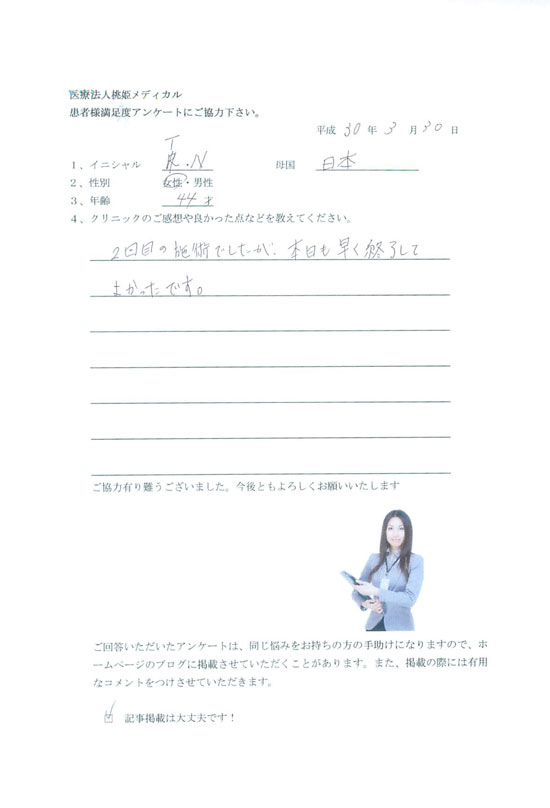 医療法人桃姫メディカル
患者様満足度アンケートにご協力下さい。
平成 30 年 3 月 30 日
1、イニシャル T .N 母国 日本
2、性別 女性・男性
3、年齢 44才
4、クリニックのご感想や良かった点などを教えてください。
2回目の施術でしたが、本日も早く終了して
よかったです。
ご協力有り難うございました。今後ともよろしくお願いいたします
ご回答いただいたアンケートは、同じ悩みをお持ちの方の手助けになりますので、ホ
ームページのブログに掲載させていただくことがあります。また、掲載の際には有用
なコメントをつけさせていただきます。
☑ 記事掲載は大丈夫です！